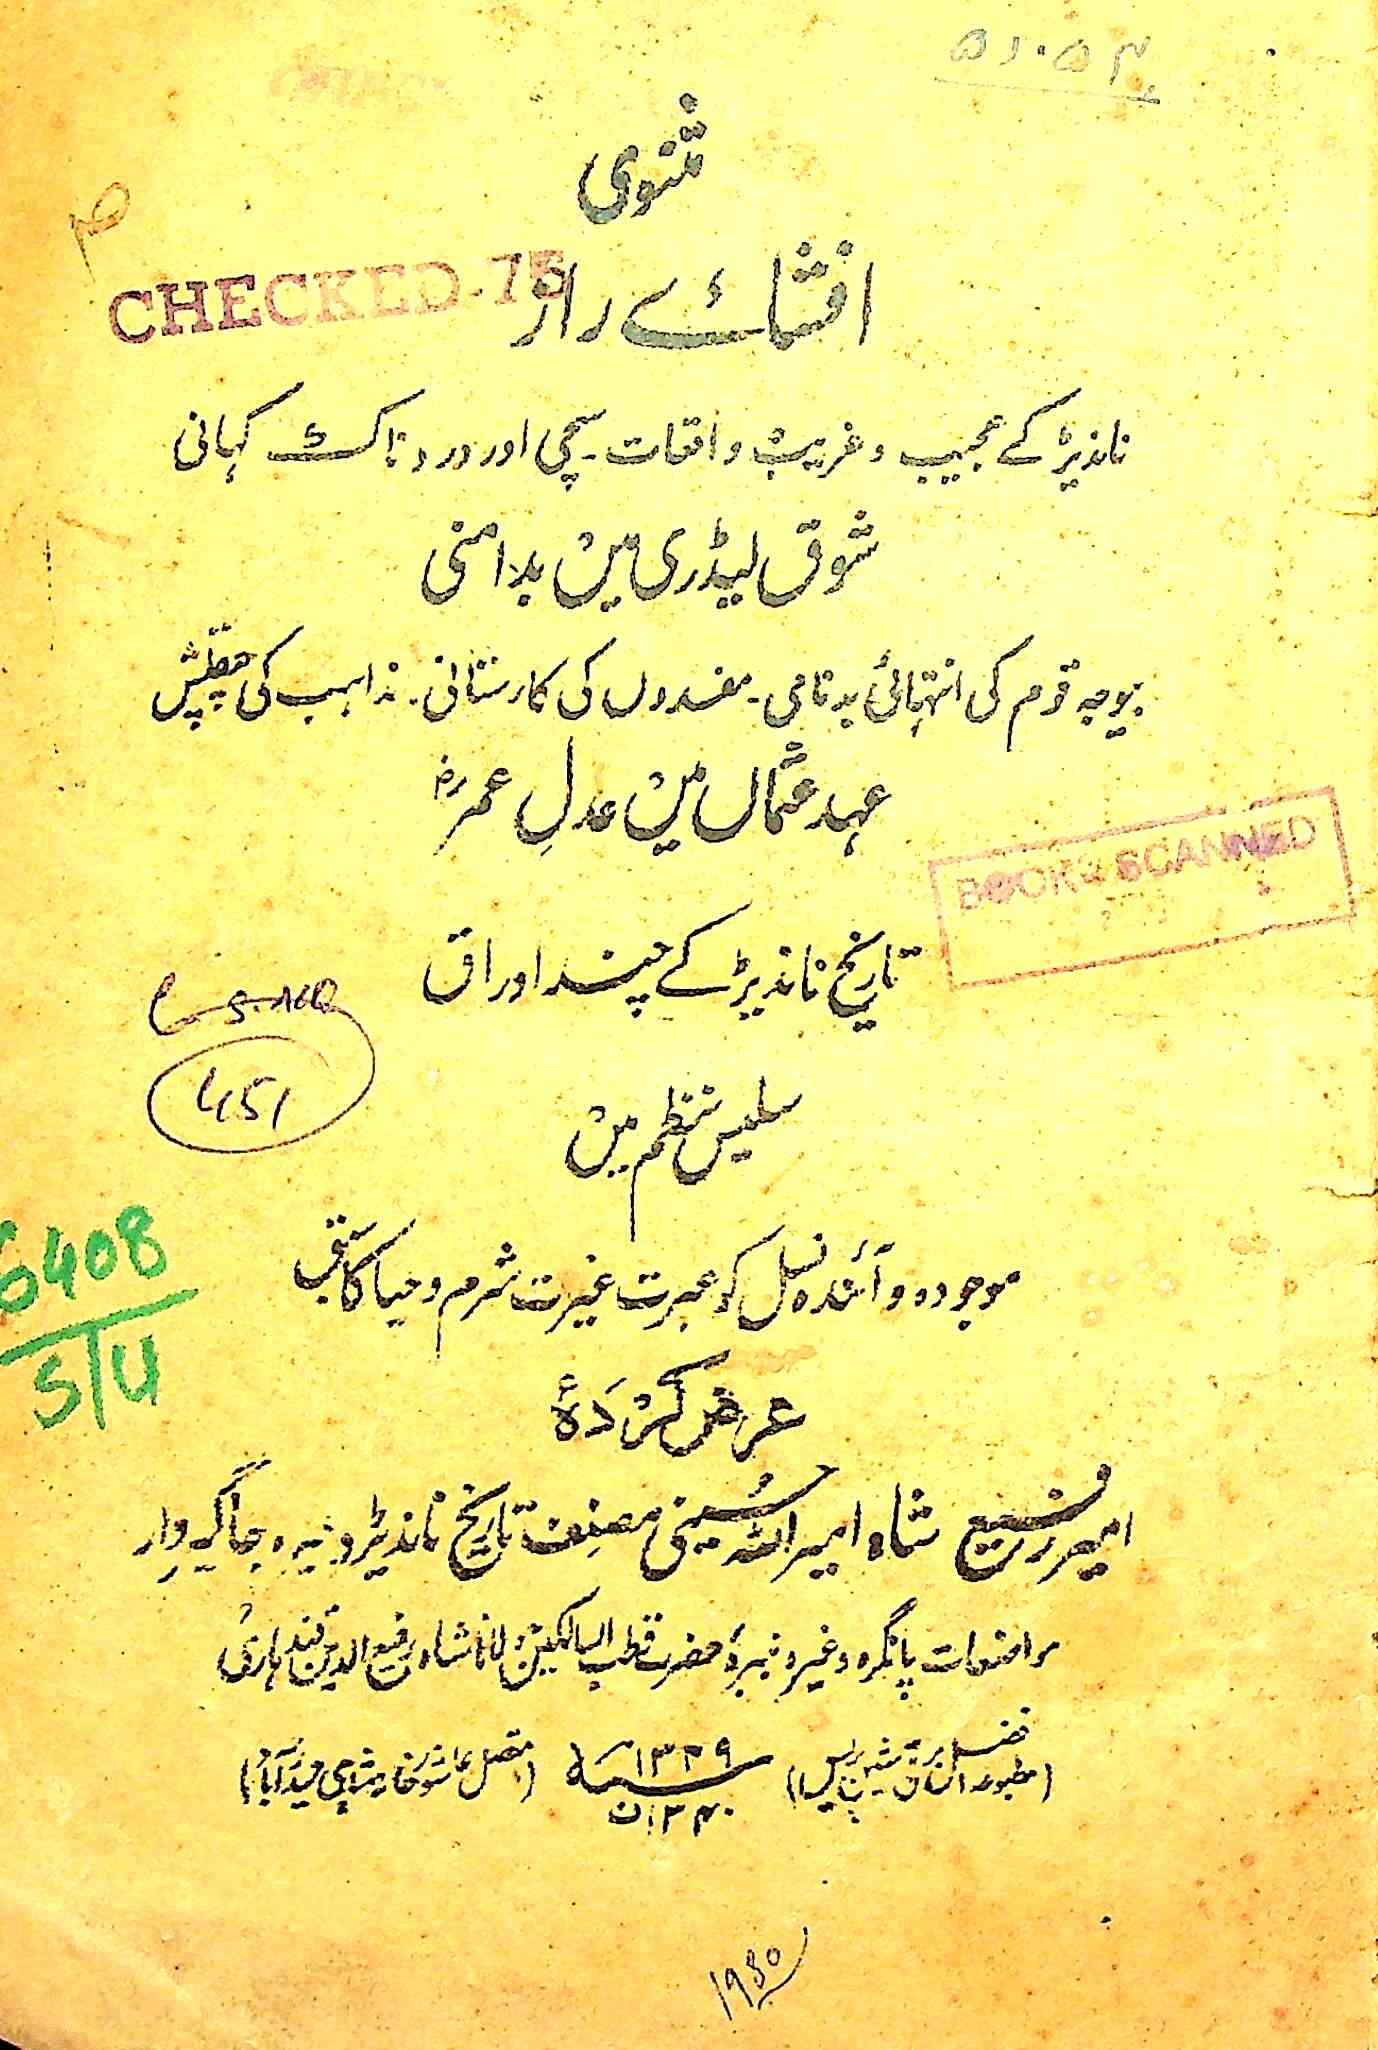 ۵۱۰۵۳
مثنوی
CHECKED-75
افشائے راز
نانڈیڑ کے عجیب و غریب واقعات۔ سچی اور دردناک کہانی
شوق لیڈری میں بدامنی
بوجہ قوم کی انتہائی بدنامی۔ مفسدوں کی کارستانی۔ مذاہب کی چپقلش
عہد عثماں میں عدلِ عمرؓ
BOOK SCANNED
تاریخ نانڈیڑ کے چند اوراق
سلیس نظم میں
موجودہ و آئندہ نسل کو عبرت غیرت شرم و حیا کا سبق
6408
S/U
عرض کردۂ
امیر رفیع شاہ امیر اللہ حسینی مصنف تاریخ نانڈیڑ وغیرہ جاگیردار
مواضعات پانگرہ وغیرہ نبیرۂ حضرت قطب السالکین مولانا شاہ رفیع الدین قندہاریؒ
(مطبوعہ پریس) ۱۳۴۹ (متصل عاشور خانہ حیدرآباد)
۱۳۴۰ف
1930